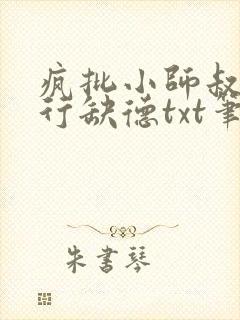 疯批小师叔
行缺德txt笔
朱书琴